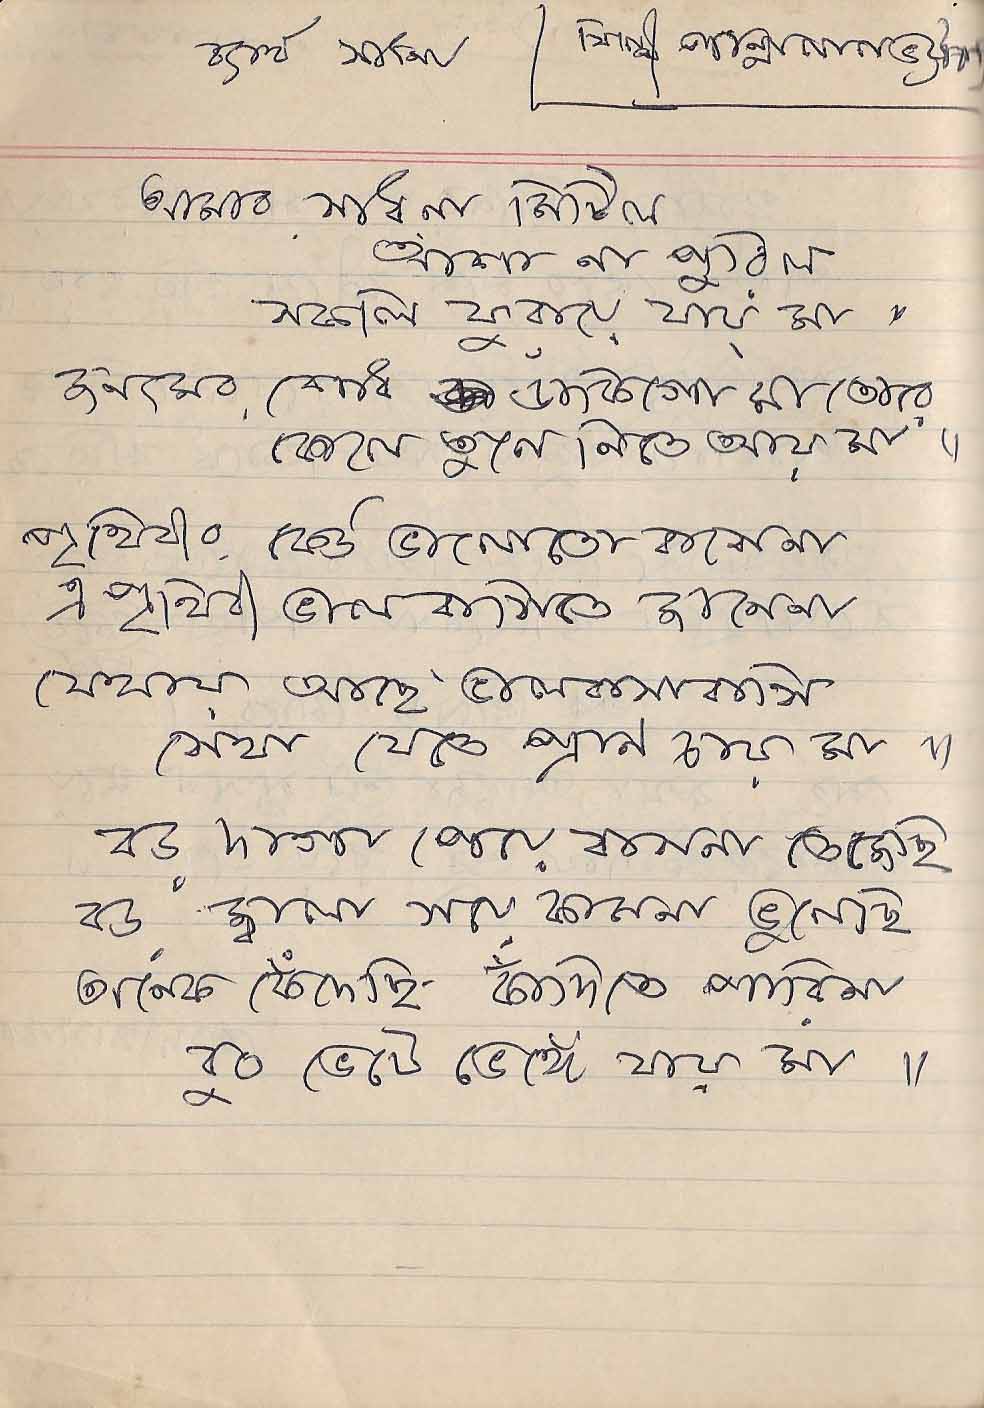 ব্যর্থ সাধনা শিল্পী পান্নালাল ভট্টাচার্য
আমার সাধ না মিটিল
আশা না পুরিল
সকলি ফুরায়ে যায় মা ॥
জনমের শোধ ডাকিগো মা তোরে
কোলে তুলে নিতে আয় মা ॥
পৃথিবীর কেউ ভালোতো বাসেনা
এ পৃথিবী ভাল বাসিতে জানেনা
যেথায় আছে ভালবাসাবাসি
সেথা যেতে প্রাণ চায় মা ॥
বড় দাগা পেয়ে বাসনা ত্যেজেছি
বড় জ্বালা সয়ে কামনা ভুলেছি
অনেক কেঁদেছি কাঁদিতে পারিনা
বুক ফেটে ভেঙ্গে যায় মা ॥